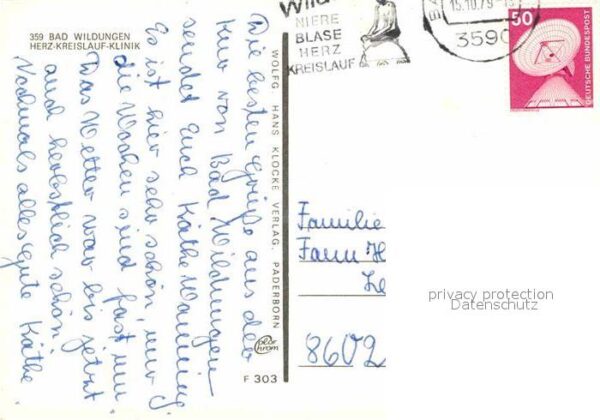 359 BAD WILDUNGEN
HERZ-KREISLAUF-KLINIK
Die besten Grüße aus der
Kur von Bad Wildungen
sendet Euch Käthe
Es ist hier sehr schön, nur
die Wochen sind fast um
Das Wetter war bis jetzt
auch herbstlich schön.
Nochmals alles gute Käthe.
WOLFG. HANS KLOCKE VERLAG, PADERBORN
F 303
NIERE
BLASE
HERZ
KREISLAUF
15.10.79
3590
50
DEUTSCHE BUNDESPOST
Familie
8602
privacy protection
Datenschutz